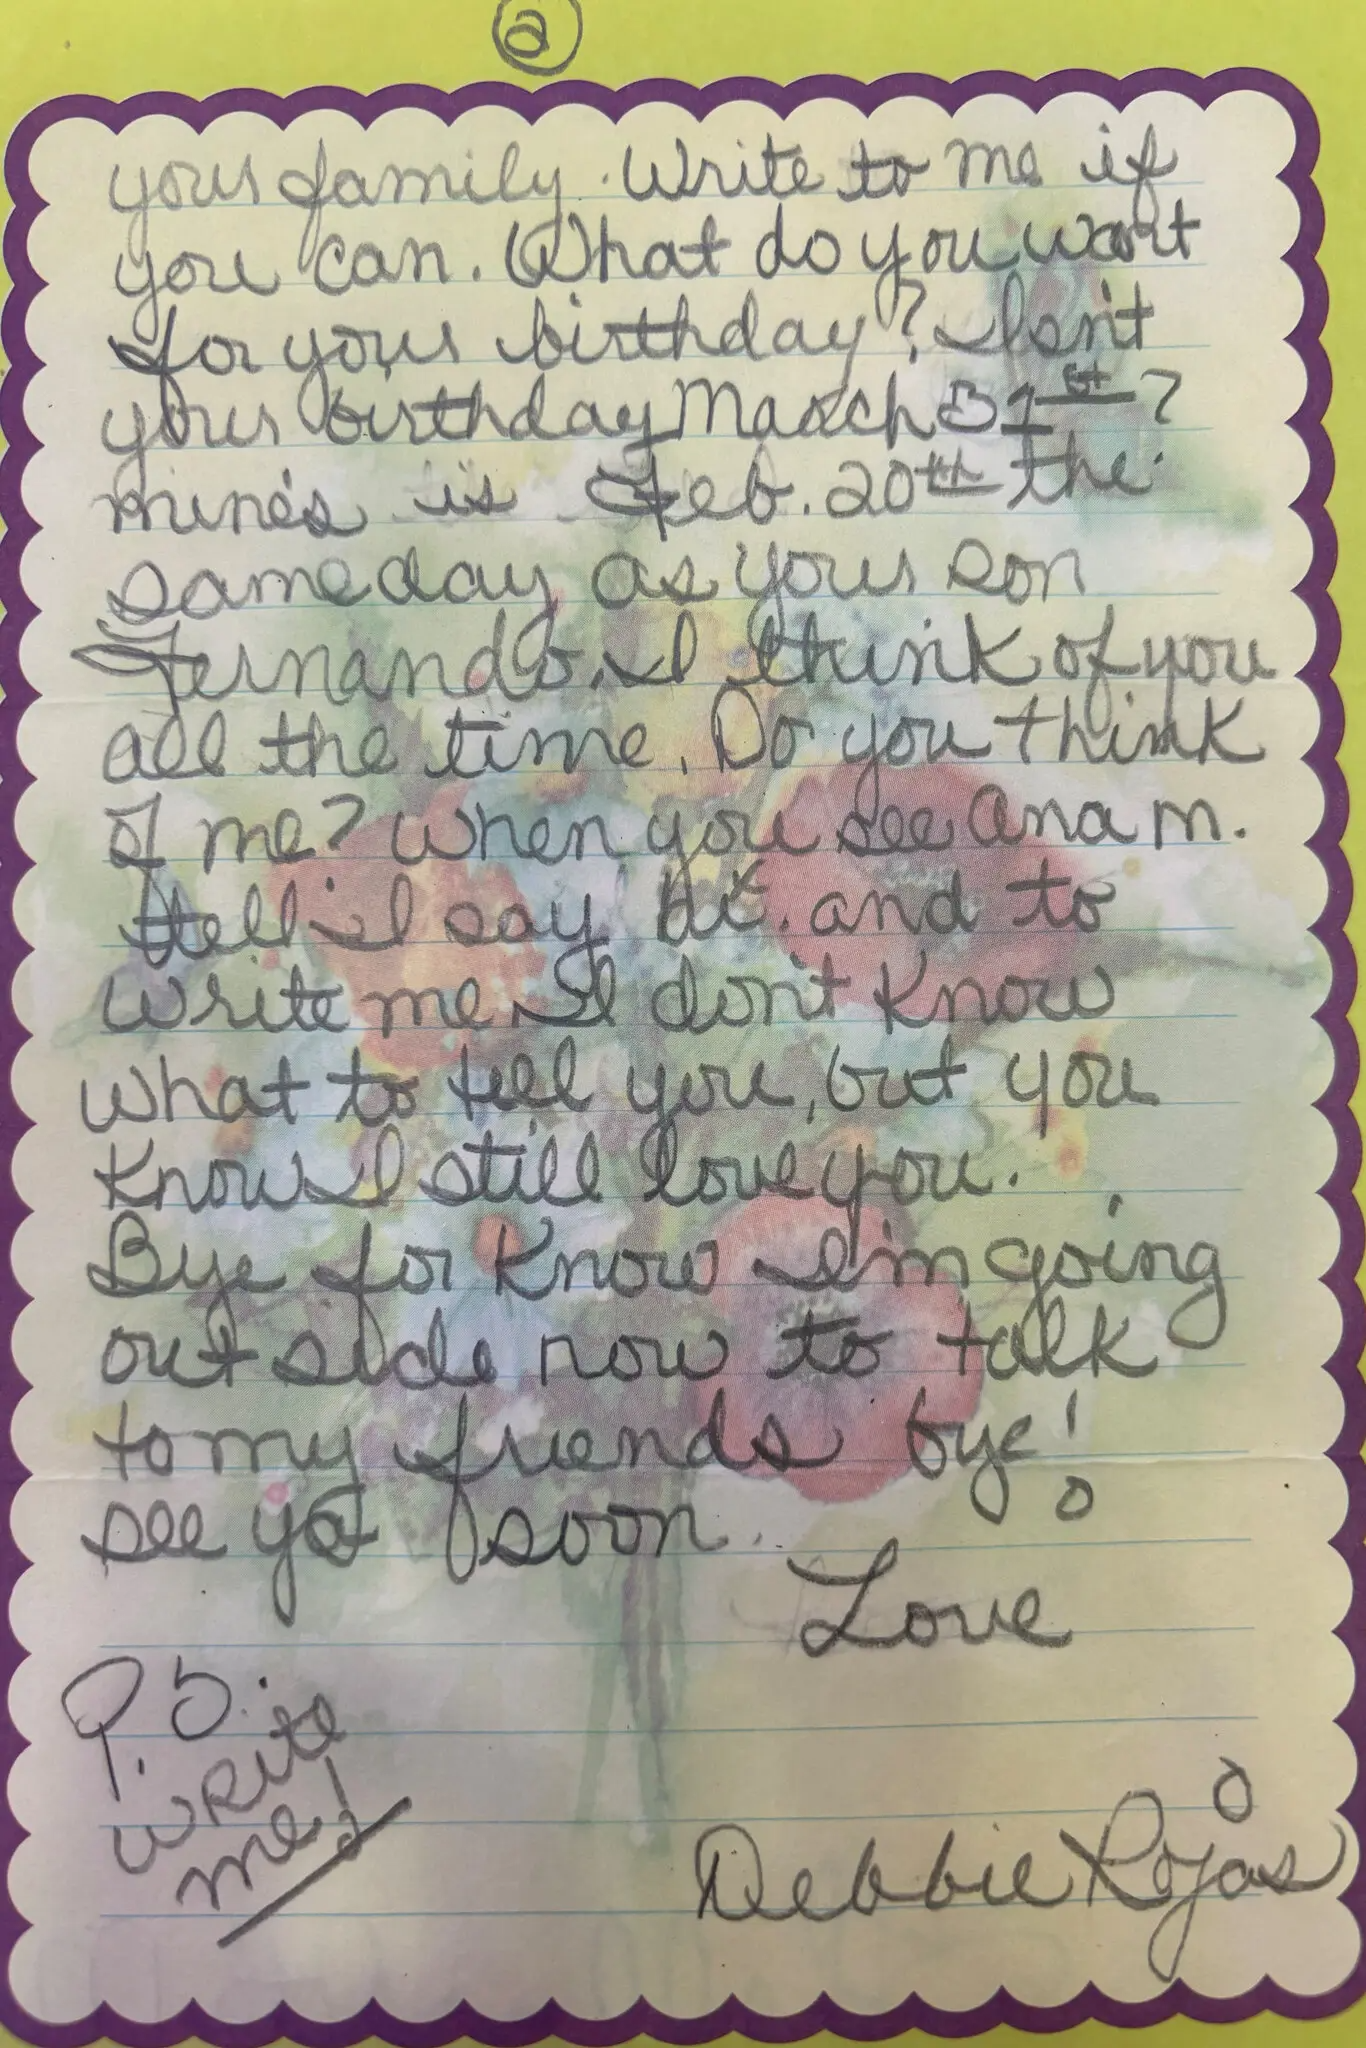 2
your family. Write to me if
you can. What do you want
for your birthday? Isn't
your birthday March 31st?
mines is Feb. 20th the
same day as your son
Fernando. I think of you
all the time. Do you think
of me? When you see Ana M.
tell I say hi. and to
write me. I don't know
what to tell you, but you
know I still love you.
Bye for know I'm going
out side now to talk
to my friends bye!
see ya soon.
Love
P.S.
write
me!
Debbie Rojas